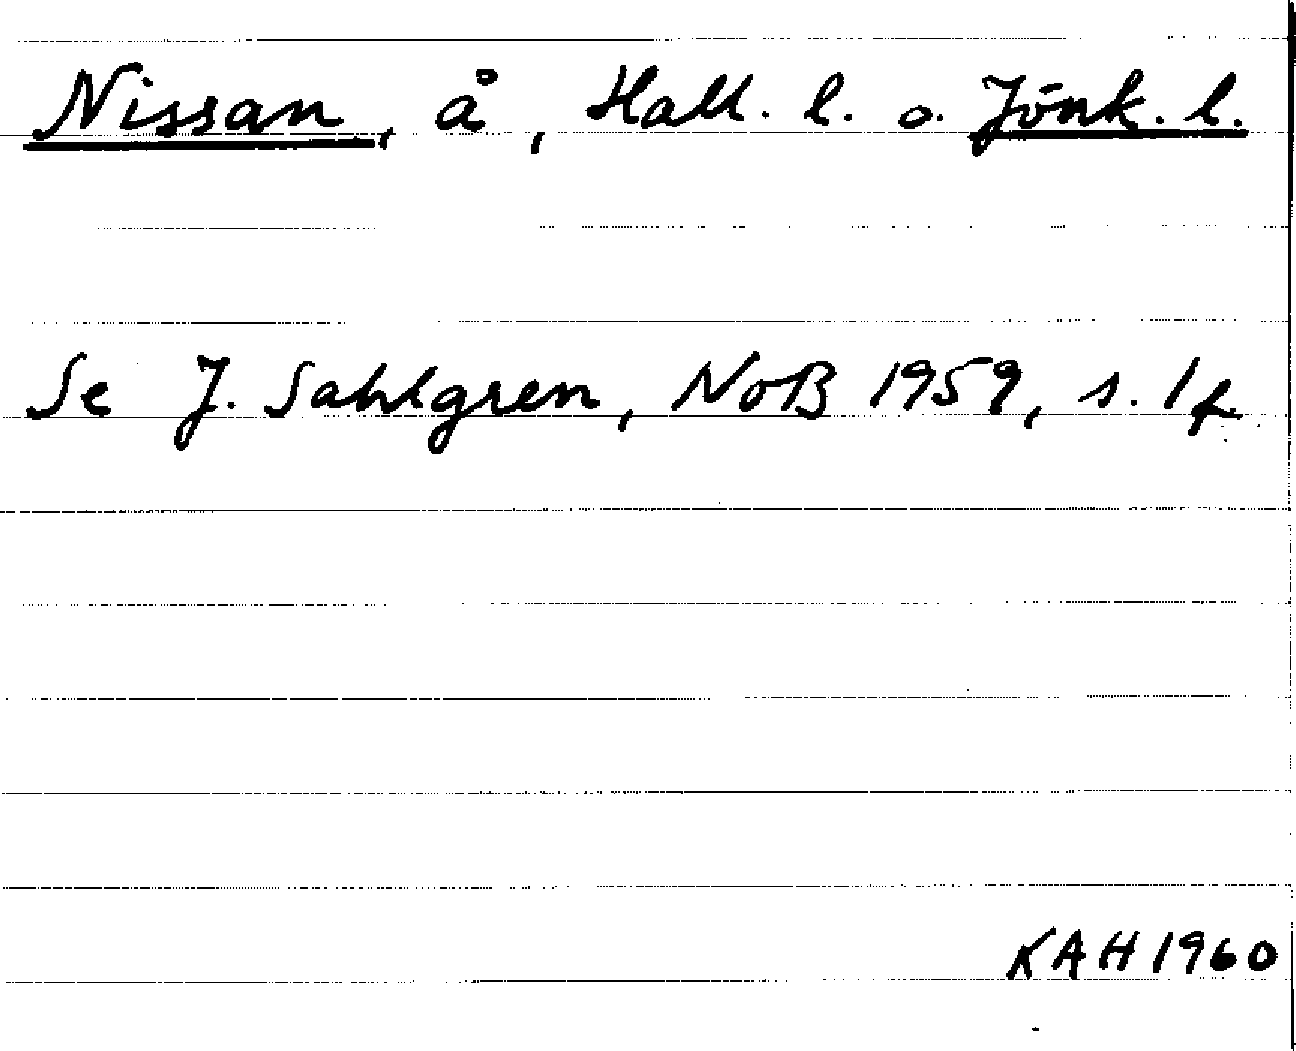 Nissan, å, Hall. l. o. Jönk. l.
Se J. Sahlgren, NoB 1959, s. 1 f.
KAH 1960